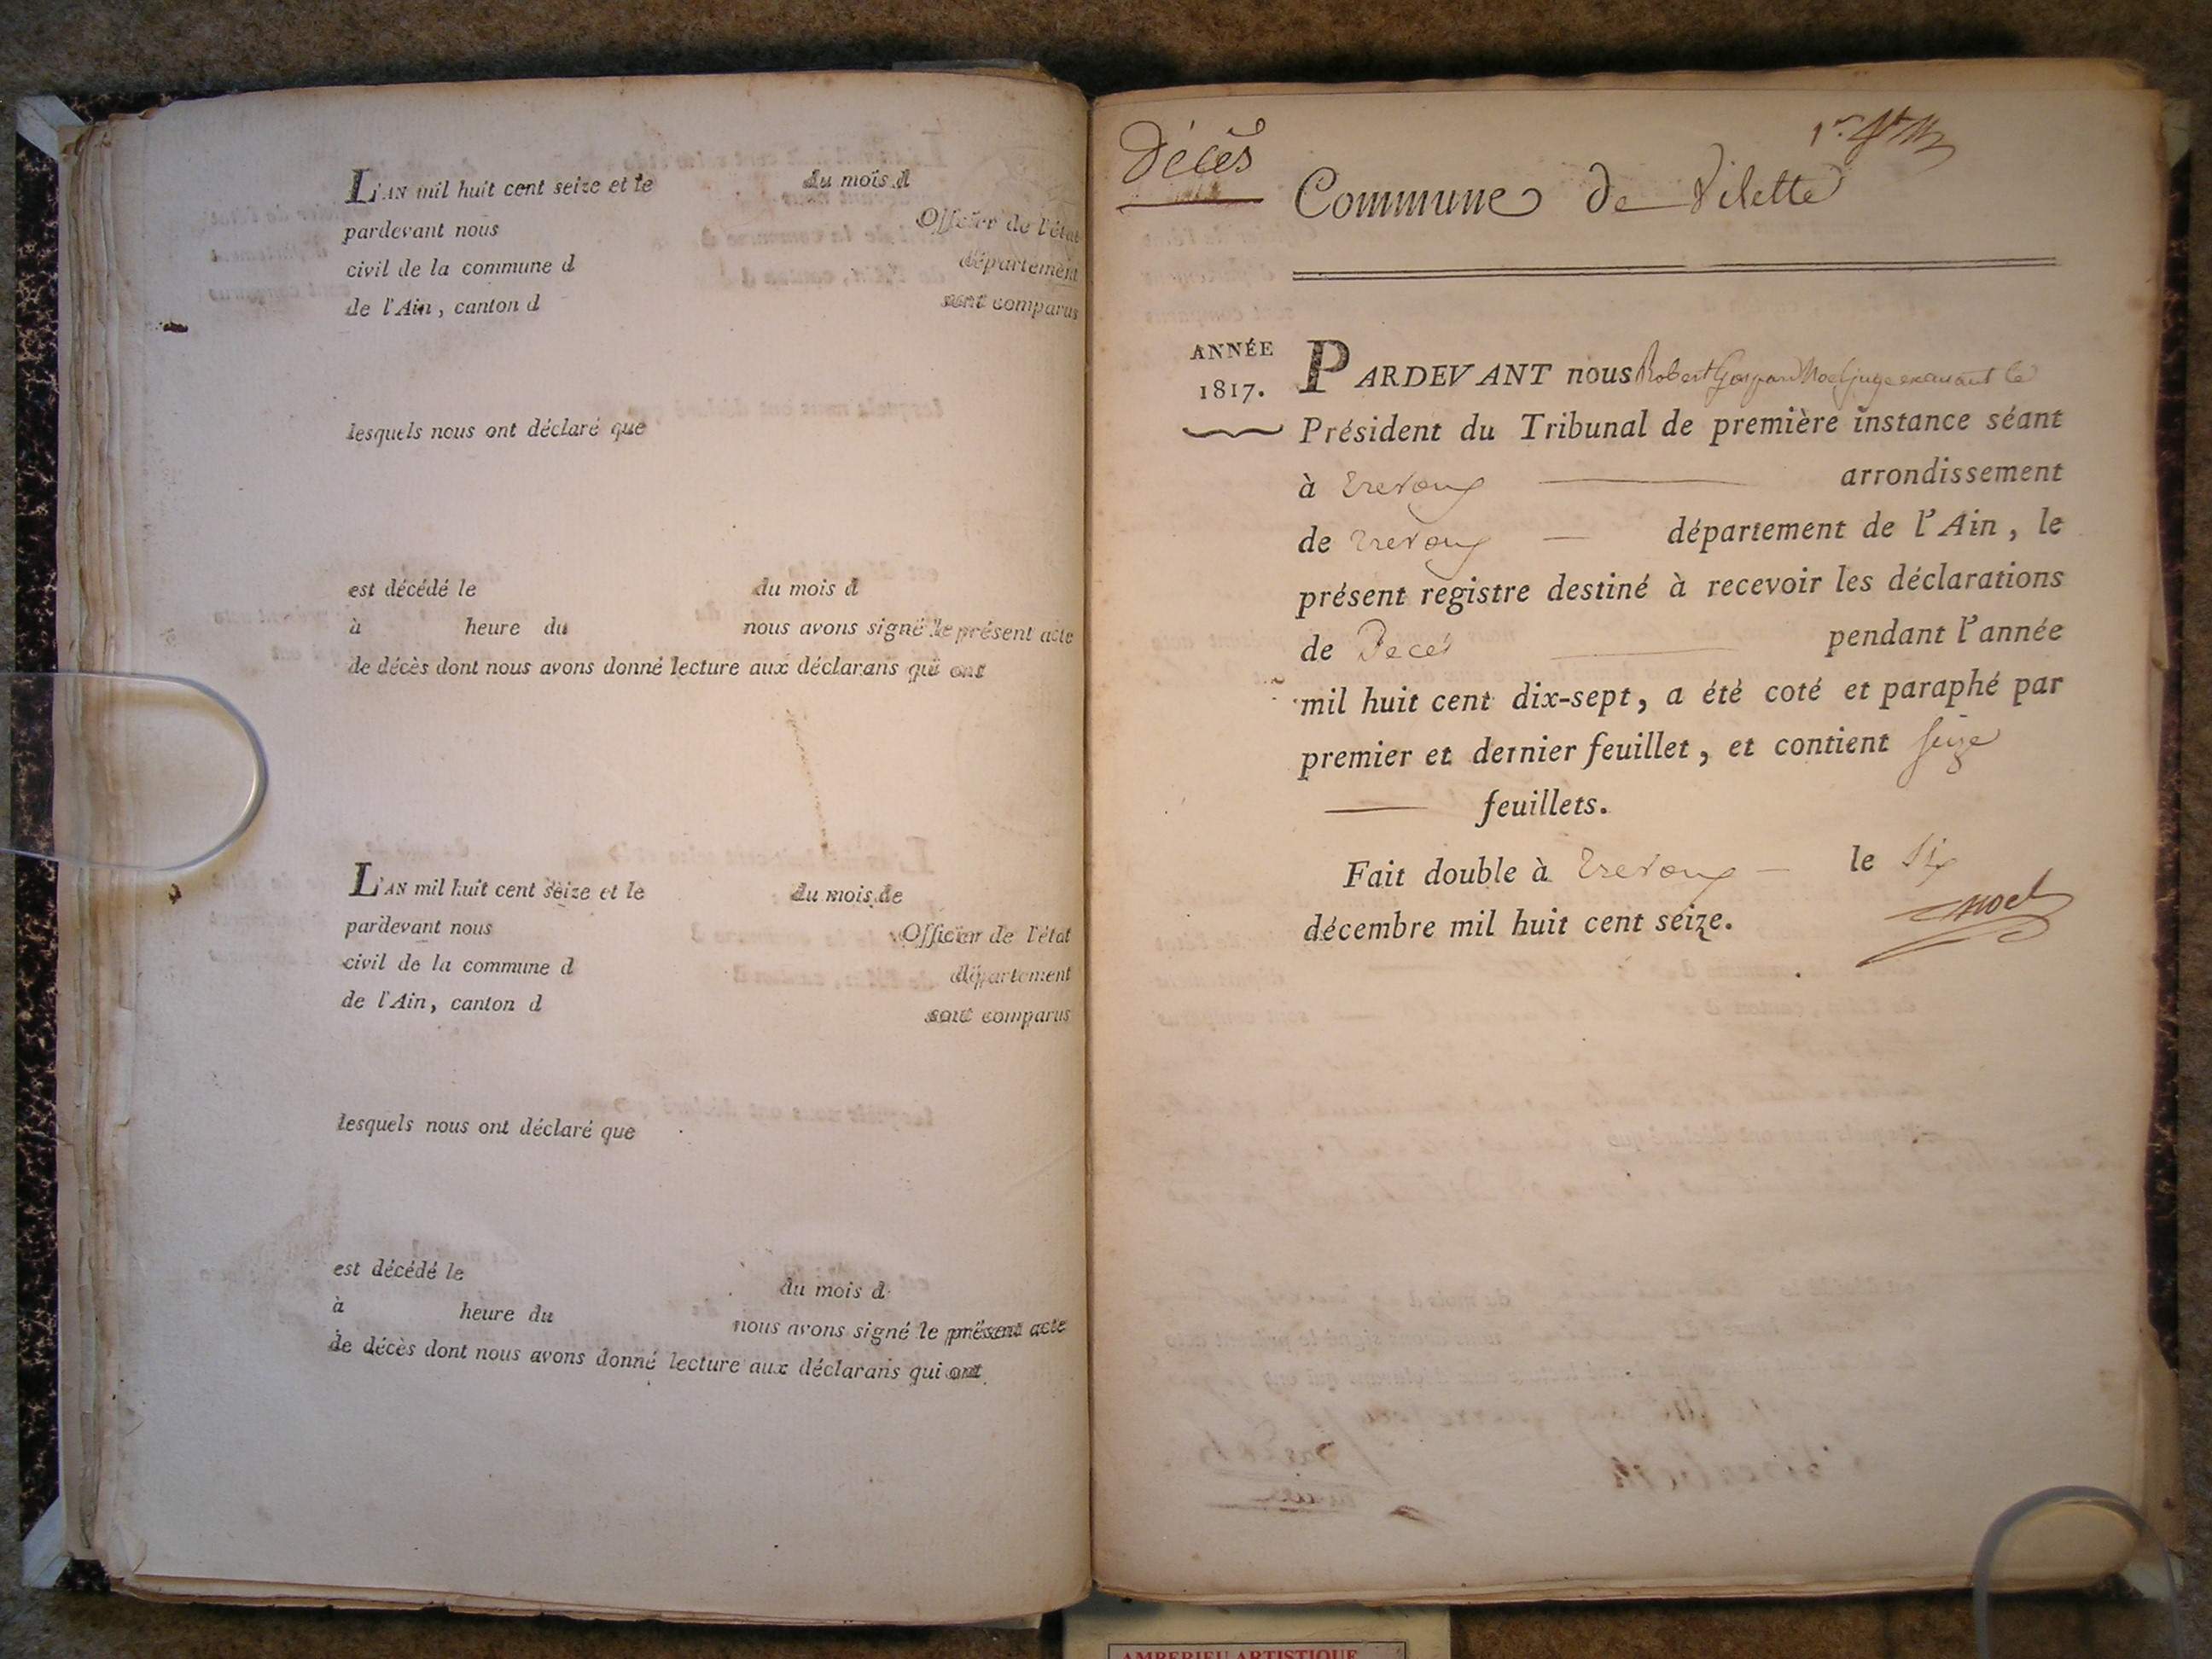 L'AN mil huit cent seize et le du mois d
pardevant nous Officier de l'état
civil de la commune d département
de l'Ain, canton d sont comparus
lesquels nous ont déclaré que
est décédé le du mois d
à heure du nous avons signé le présent acte
de décès dont nous avons donné lecture aux déclarans qui ont
L'AN mil huit cent seize et le du mois de
pardevant nous Officier de l'état
civil de la commune d département
de l'Ain, canton d sont comparus
lesquels nous ont déclaré que
est décédé le du mois d
à heure du nous avons signé le présent acte
de décès dont nous avons donné lecture aux déclarans qui ont
Décès
1er ft
Commune de Vilette
ANNÉE
1817.
PARDEVANT nous Robert Gaspar Noel juge exerçant le
Président du Tribunal de première instance séant
à Trevoux arrondissement
de Trevoux département de l'Ain, le
présent registre destiné à recevoir les déclarations
de Décès pendant l'année
mil huit cent dix-sept, a été coté et paraphé par
premier et dernier feuillet, et contient seize
feuillets.
Fait double à Trevoux le six
décembre mil huit cent seize.
Noel
AMBERIEU ARTISTIQUE